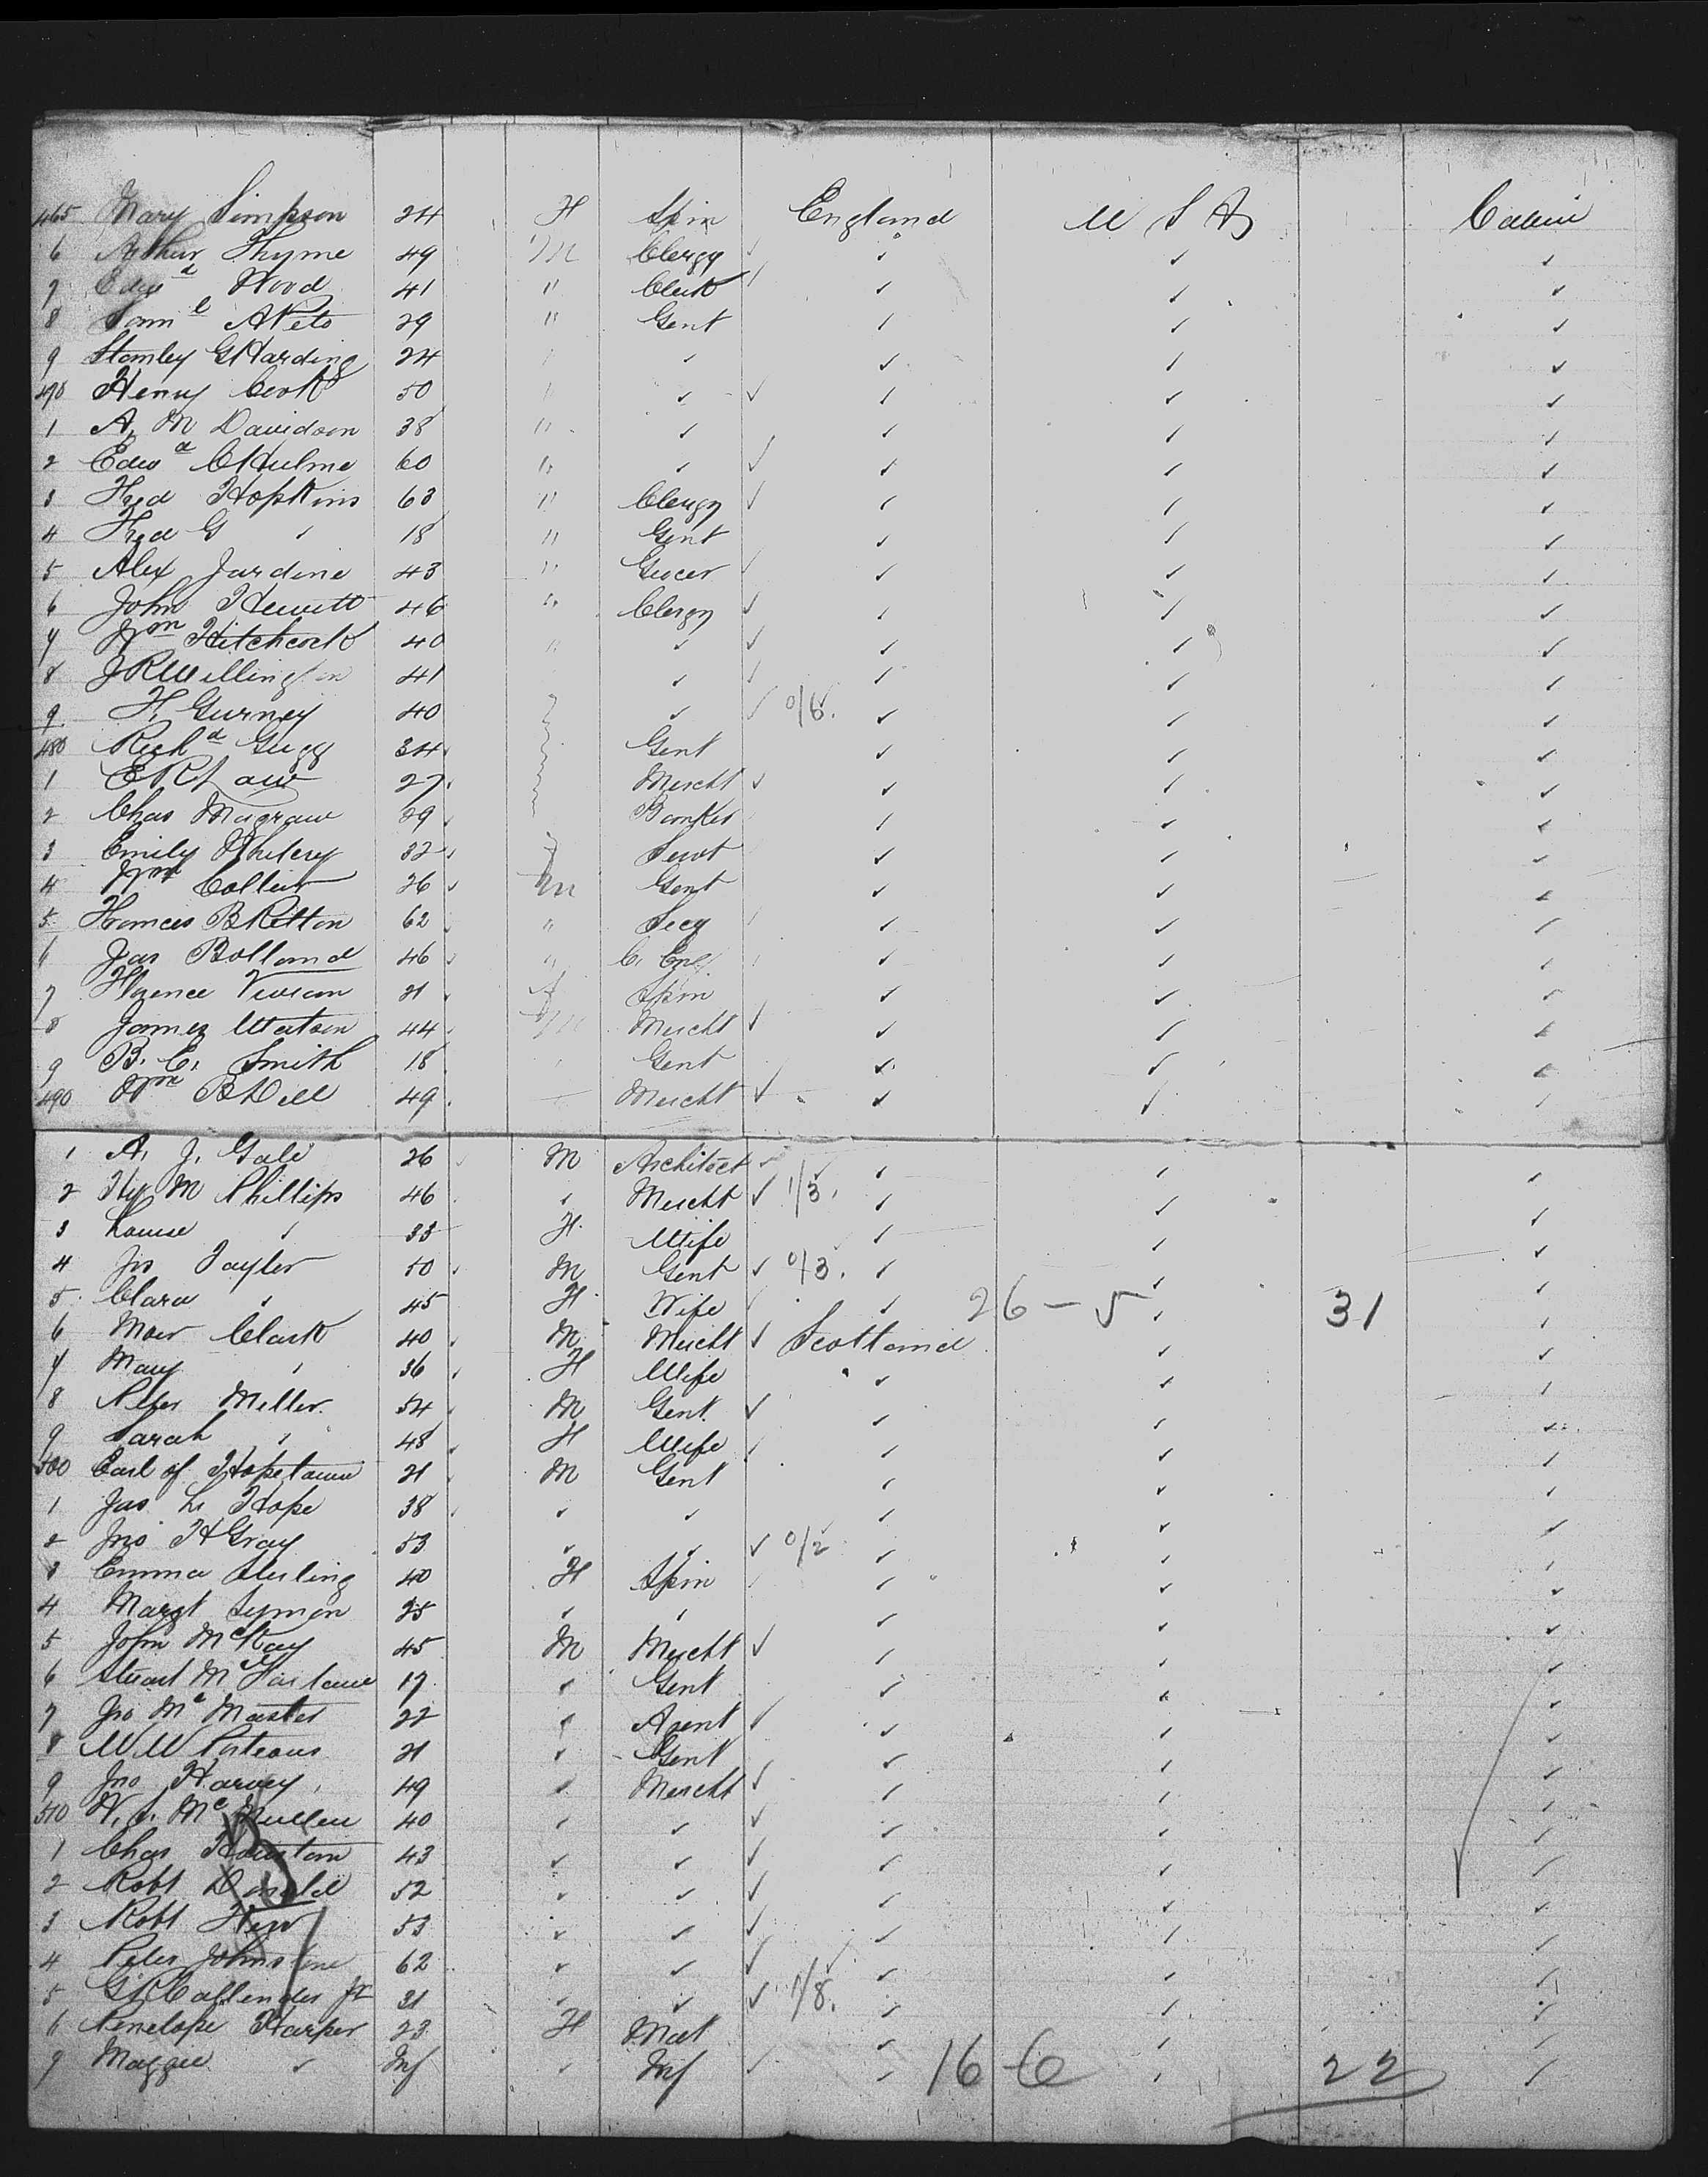 465 Mary Simpson 24 F Spin England U S A Cabin
6 Arthur Thyme 49 M Clergy ✓ ✓ ✓ ✓
7 Edwd Wood 41 " Clerk ✓ ✓ ✓ ✓
8 Saml A Peto 29 " Gent ✓ ✓ ✓
9 Stanley G Harding 24 " ✓ ✓ ✓ ✓
470 Henry Cook 50 " ✓ ✓ ✓ ✓ ✓
1 A. M Davidson 38 " ✓ ✓ ✓ ✓
2 Edwd C Hulme 60 " ✓ ✓ ✓ ✓ ✓
3 Fred Hopkins 63 " Clergy ✓ ✓ ✓ ✓
4 Fred G ✓ 18 " Gent ✓ ✓ ✓
5 Alex Jardine 43 " Grocer ✓ ✓ ✓ ✓
6 John Hewitt 46 " Clergy ✓ ✓ ✓ ✓
7 Wm Hitchcock 40 " ✓ ✓ ✓ ✓ ✓
8 J R Willington 41 ✓ ✓ ✓ ✓ ✓
9 H. Gurney 40 ✓ ✓ 0/6. ✓ ✓ ✓
480 Richd Gugg 34 Gent ✓ ✓ ✓
1 E R Law 27 Mercht ✓ ✓ ✓ ✓
2 Chas Magraw 29 Banker ✓ ✓ ✓
3 Emily 32 Servt ✓ ✓ ✓
4 Wm Collier 26 M Gent ✓ ✓ ✓
5 Frances B Ritton 62 " Secy ✓ ✓ ✓
6 Jas Bolland 46 " C. Eng ✓ ✓ ✓
7 Florence Vivian 21 F Spin ✓ ✓ ✓
8 James Watson 44 M Mercht ✓ ✓ ✓ ✓
9 B. C. Smith 18 Gent ✓ ✓ ✓
490 Wm B Dill 49 Mercht ✓ ✓ ✓ ✓
1 A. J. Gale 26 M Architect ✓ ✓ ✓ ✓
2 Hy M Phillips 46 ✓ Mercht ✓ 1/3. ✓ ✓ ✓
3 Louise ✓ 33 F Wife ✓ ✓ ✓
4 Jno Taylor 50 M Gent ✓ 0/3. ✓ ✓ ✓
5 Clara ✓ 45 F Wife ✓ ✓ 26 - 5 ✓ 31 ✓
6 Moir Clark 40 M Mercht ✓ Scotland ✓ ✓
7 Mary ✓ 36 F Wife ✓ ✓ ✓
8 Peter Miller 54 M Gent ✓ ✓ ✓ ✓
9 Sarah ✓ 48 F Wife ✓ ✓ ✓ ✓
500 Earl of Hopetoun 21 M Gent ✓ ✓ ✓
1 Jas L. Hope 38 ✓ ✓ ✓ ✓ ✓
2 Jno H Gray 53 ✓ ✓ ✓ 0/2 ✓ ✓ ✓
3 Emma Sterling 40 F Spin ✓ ✓ ✓
4 Margt Symon 25 ✓ ✓ ✓ ✓ ✓
5 John McKay 45 M Mercht ✓ ✓ ✓ ✓
6 Stuart McFarlane 17 ✓ Gent ✓ ✓ ✓
7 Jno McMaster 22 ✓ Agent ✓ ✓ ✓ ✓
8 W W Porteous 21 ✓ Gent ✓ ✓ ✓
9 Jno Harvey 49 ✓ Mercht ✓ ✓ ✓ ✓
510 W. S. McMullen 40 ✓ ✓ ✓ ✓ ✓ ✓
1 Chas Houston 43 ✓ ✓ ✓ ✓ ✓ ✓
2 Robt Donald 52 ✓ ✓ ✓ ✓ ✓ ✓
3 Robt 53 ✓ ✓ ✓ ✓ ✓ ✓
4 Peter Johnstone 62 ✓ ✓ ✓ ✓ ✓ ✓
5 G R Callender Jr 31 ✓ ✓ ✓ 1/8. ✓ ✓ ✓
6 Penelope Harper 23 F Mat ✓ ✓ ✓
7 Maggie ✓ Inf ✓ Inf ✓ ✓ 16 - 6 ✓ 22 ✓